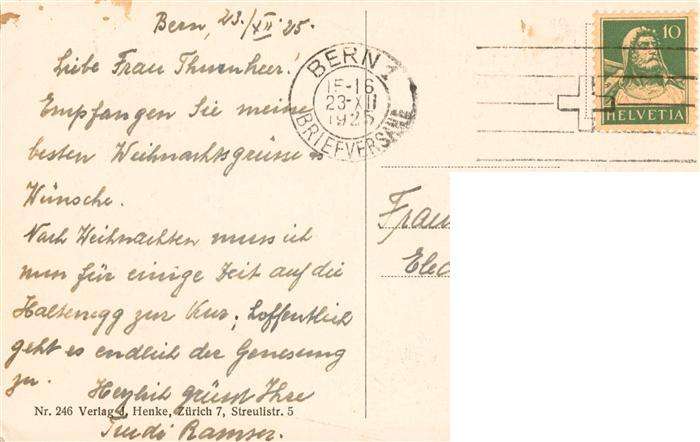 Bern, 23./XII 25.
Liebe Frau Thurnheer!
Empfangen Sie meine
besten Weihnachtsgrüsse &
Wünsche.
Nach Weihnachten muss ich
nun für einige Zeit auf die
Haltenegg zur Kur; hoffentlich
geht es endlich der Genesung
zu. Herzlich grüsst Ihre
Trudi Ramser.
Nr. 246 Verlag J. Henke, Zürich 7, Streulistr. 5
BERN 1
15-16
23-XII
1925
BRIEFVERSAND
10
HELVETIA
Frau
Elec